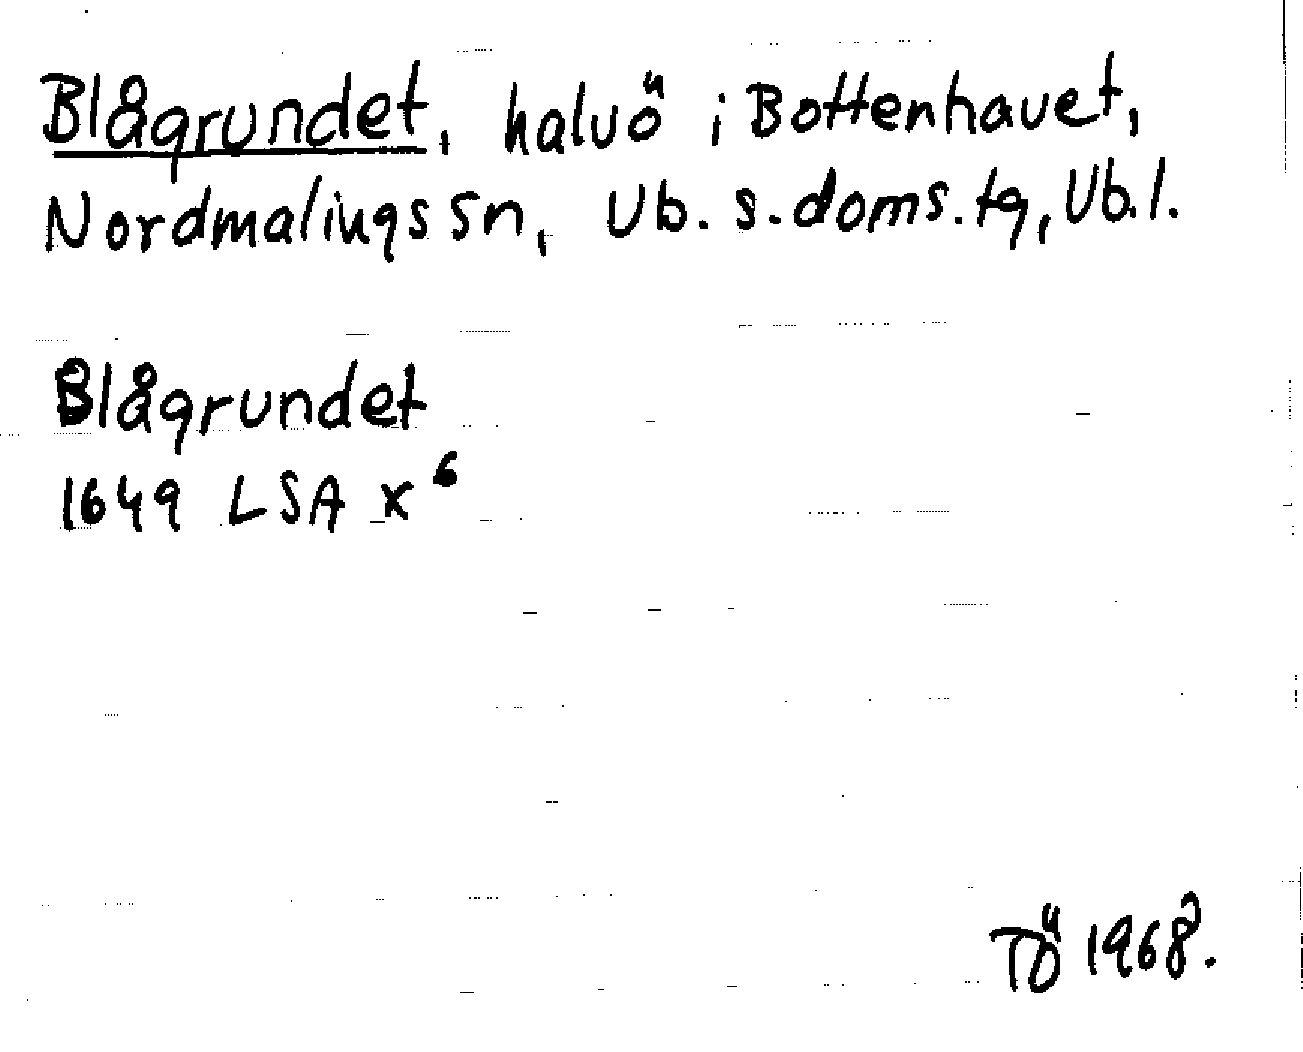 Blågrundet, halvö i Bottenhavet,
Nordmalings sn, Vb. s. doms. tg, Vb. l.
Blågrundet
1649 LSA X⁶
TÖ 1968.